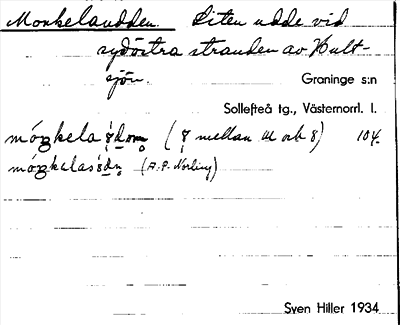 Monkelaudden. Liten udde vid
sydöstra stranden av Hult-
sjön. Graninge s:n
Sollefteå tg., Västernorrl. l.
(8 mellan u och 8) 104.
(A.P. Norling)
Sven Hiller 1934